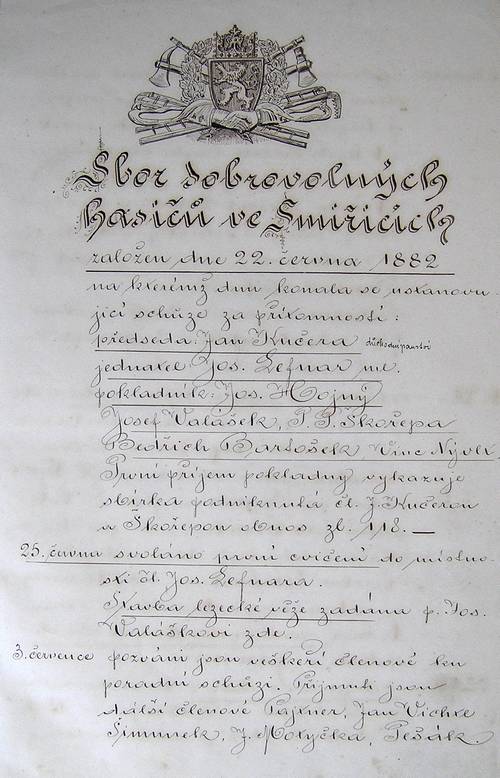 Sbor dobrovolných
hasičů ve Smiřicích
založen dne 22. června 1882
na kterémž dnu konala se ustanovu-
jící schůze za přítomnosti:
předseda: Jan Kučera
jednatel: Jos. Lefnar ml.
pokladník: Jos. Hojný
Josef Valášek, P. F. Škořepa
Bedřich Bartošek Vinc Nývlt
První příjem pokladny vykazuje
sbírka podniknutá čl. J. Kučerou
a Škořepou obnos zl. 118.—
25. června svoláno první cvičení do místno-
sti čl. Jos. Lefnara.
Stavba lezecké věže zadána p. Jos.
Valáškovi zde.
3. července pozváni jsou veškeří členové ku
poradní schůzi. Přijmuti jsou
další členové Pajkner, Jan Vichte
Šimunek, J. Motyčka, Pešák